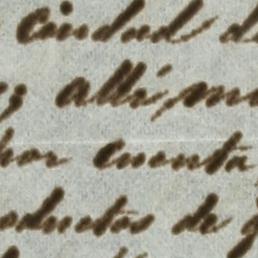 Ciudad d
allí, me
hor Cuenta
oductos de